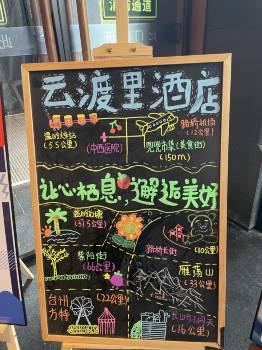 消防通道
云渡里酒店
温岭火车站
(5.5公里)
(中西医院)
路桥机场
(12公里)
(美食街)
(150m)
让心栖息,邂逅美好
(31.5公里)
路桥长街
(10公里)
紫阳街
(66公里)
雁荡山
(33公里)
台州
方特
(22公里)
(16公里)